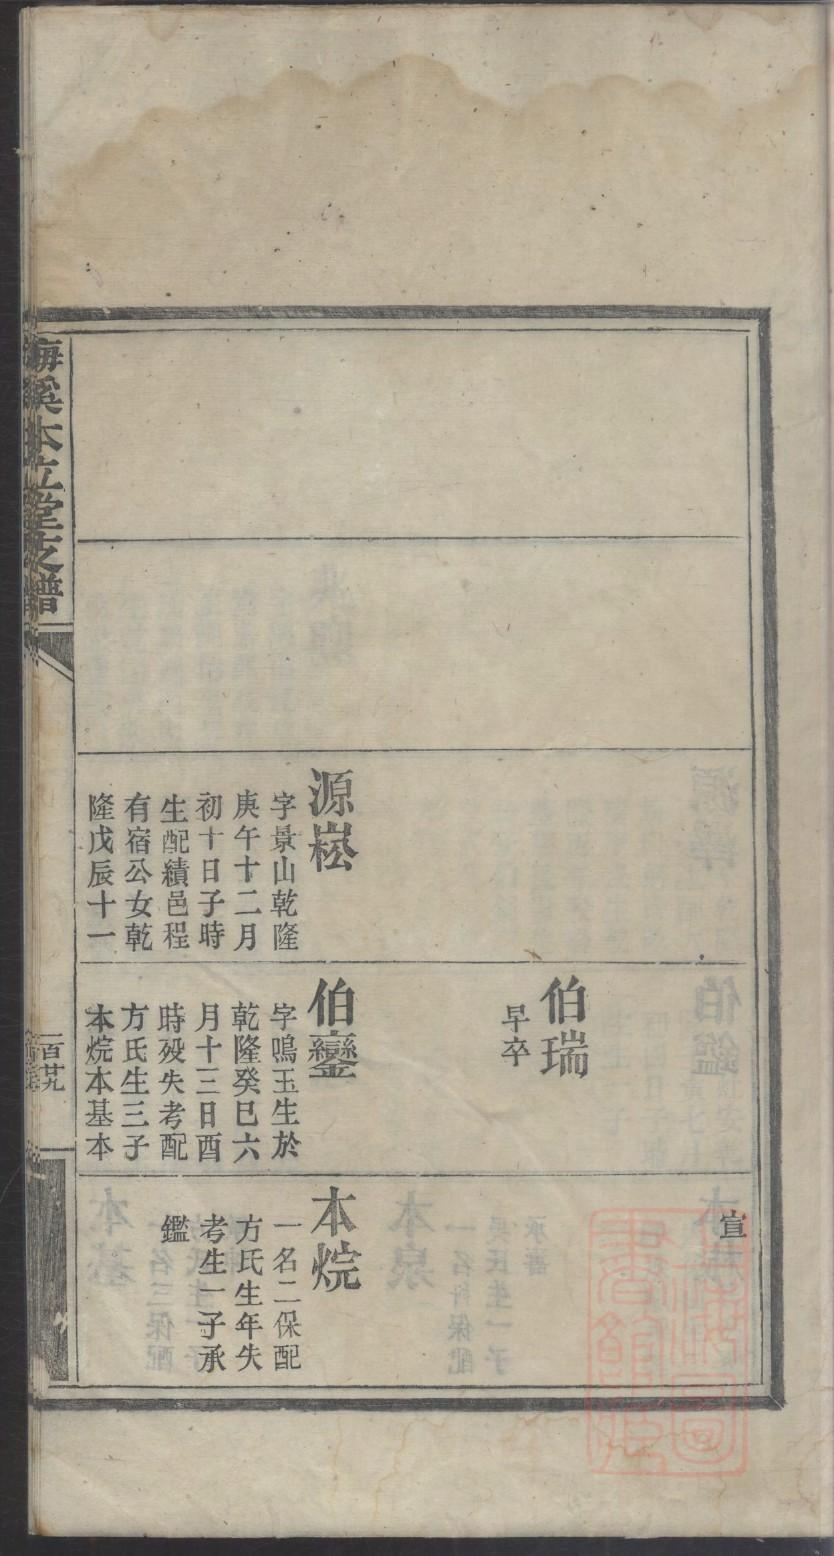 宣
源崧
字景山乾隆
庚午十二月
初十日子時
生配績邑程
有宿公女乾
隆戊辰十一
伯瑞
早卒
伯鑾
字鳴玉生於
乾隆癸巳六
月十三日酉
時歿失考配
方氏生三子
本烷本基本
本烷
一名二保配
方氏生年失
考生一子承
鑑
溪本立堂支譜
百廿九